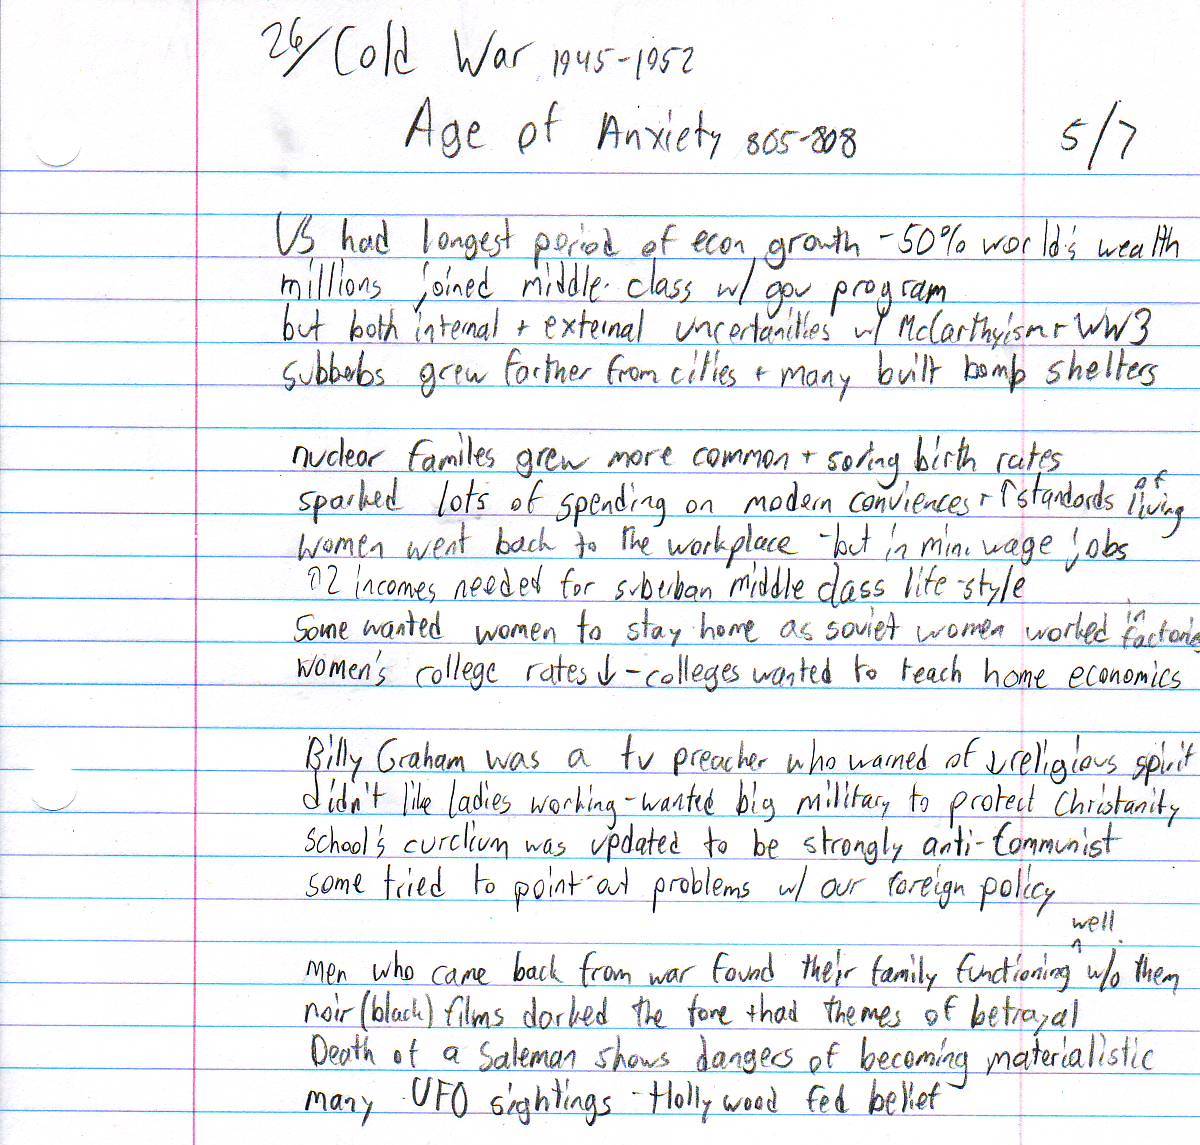 26/Cold War 1945-1952
Age of Anxiety 805-808 5/7
US had longest period of econ growth -50% world's wealth
millions joined middle class w/ gov program
but both internal + external uncertanities w/ McCarthyism + WW3
subberbs grew farther from cities + many built bomb shelters
nuclear familes grew more common + soring birth rates
sparked lots of spending on modern conviences + ↑standards of living
women went back to the workplace -but in min. wage jobs
2 incomes needed for suberban middle class life-style
Some wanted women to stay home as soviet women worked in factories
women's college rates ↓ - colleges wanted to teach home economics
Billy Graham was a tv preacher who warned of ↓religious spirit
didn't like ladies working - wanted big military to protect Christanity
School's curclium was updated to be strongly anti-Communist
some tried to point-out problems w/ our foreign policy
men who came back from war found their family functioning ^well w/o them
noir (black) films darked the tone + had themes of betrayal
Death of a Saleman shows dangers of becoming materialistic
many UFO sightings - Hollywood fed belief